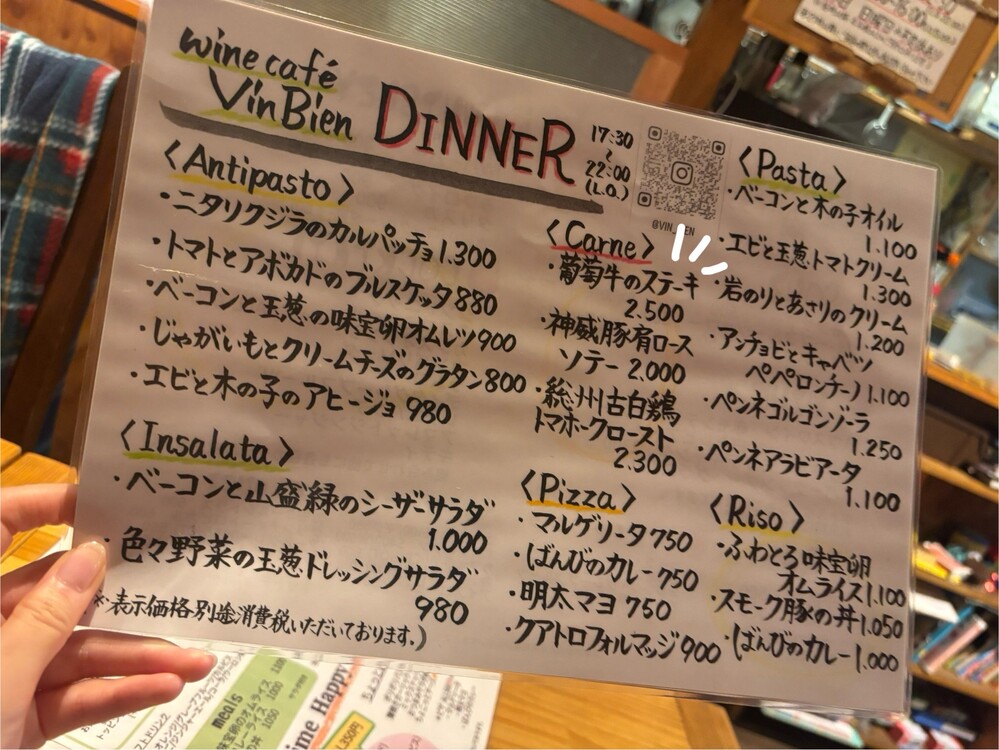 wine café
VinBien
DINNER
17:30
~
22:00
(L.O.)
<Antipasto>
・ニタリクジラのカルパッチョ1.300
・トマトとアボカドのブルスケッタ880
・ベーコンと玉葱の味宝卵オムレツ900
・じゃがいもとクリームチーズのグラタン800
・エビと木の子のアヒージョ 980
<Insalata>
・ベーコンと山盛緑のシーザーサラダ
1.000
・色々野菜の玉葱ドレッシングサラダ
980
※表示価格別途消費税いただいております。)
<Carne>
・葡萄牛のステーキ
2.500
・神威豚肩ロース
ソテー 2.000
・総州古白鶏
トマホークロースト
2.300
<Pizza>
・マルゲリータ750
・ばんびのカレー750
・明太マヨ 750
・クアトロフォルマッジ900
<Pasta>
・ベーコンと木の子オイル
1.100
・エビと玉葱トマトクリーム
1.300
・岩のりとあさりのクリーム
1.200
・アンチョビとキャベツ
ペペロンチーノ1.100
・ペンネゴルゴンゾーラ
1.250
・ペンネアラビアータ
1.100
<Riso>
・ふわとろ味宝卵
オムライス1.100
・スモーク豚の丼1.050
・ばんびのカレー1.000
meals